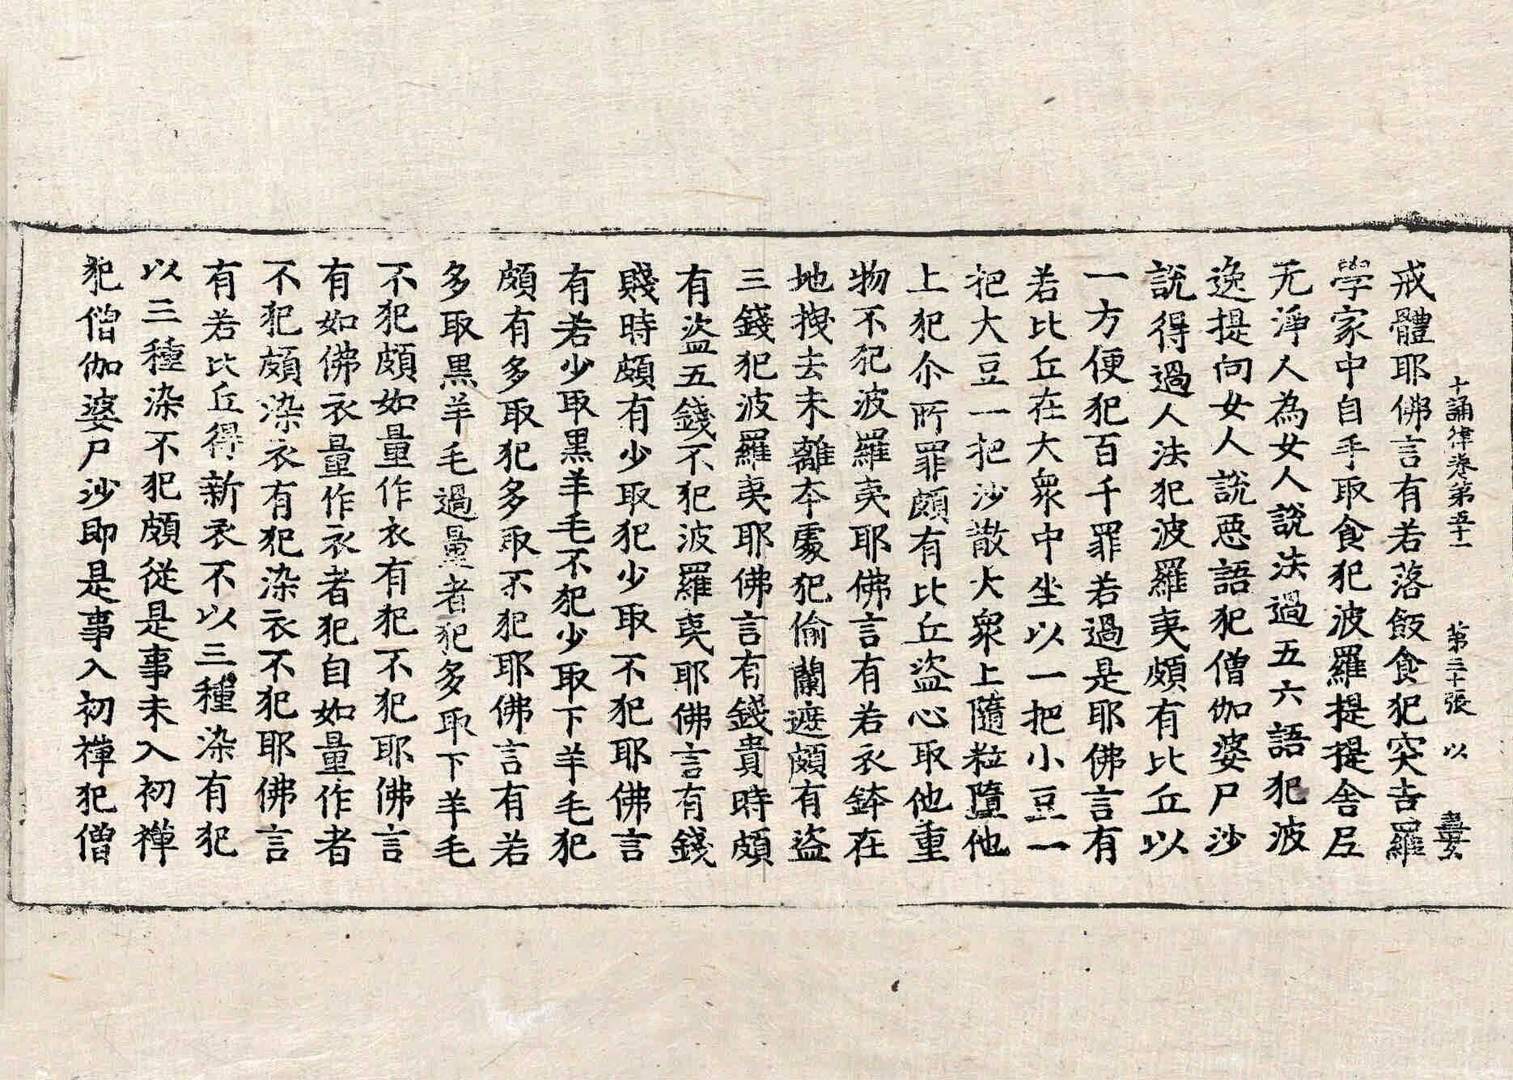 十誦律卷第五十一 第二十張 以
戒體耶佛言有若落飯食犯突吉羅
學家中自手取食犯波羅提提舍尼
无淨人為女人說法過五六語犯波
逸提向女人說惡語犯僧伽婆尸沙
說得過人法犯波羅夷頗有比丘以
一方便犯百千罪若過是耶佛言有
若比丘在大衆中坐以一把小豆一
把大豆一把沙散大衆上隨粒墮他
上犯尒所罪頗有比丘盜心取他重
物不犯波羅夷耶佛言有若衣鉢在
地拽去未離本處犯偷蘭遮頗有盜
三錢犯波羅夷耶佛言有錢貴時頗
有盜五錢不犯波羅夷耶佛言有錢
賤時頗有少取犯少取不犯耶佛言
有若少取黑羊毛不犯少取下羊毛犯
頗有多取犯多取不犯耶佛言有若
多取黑羊毛過量者犯多取下羊毛
不犯頗如量作衣有犯不犯耶佛言
有如佛衣量作衣者犯自如量作者
不犯頗染衣有犯染衣不犯耶佛言
有若比丘得新衣不以三種染有犯
以三種染不犯頗從是事未入初禪
犯僧伽婆尸沙即是事入初禪犯僧